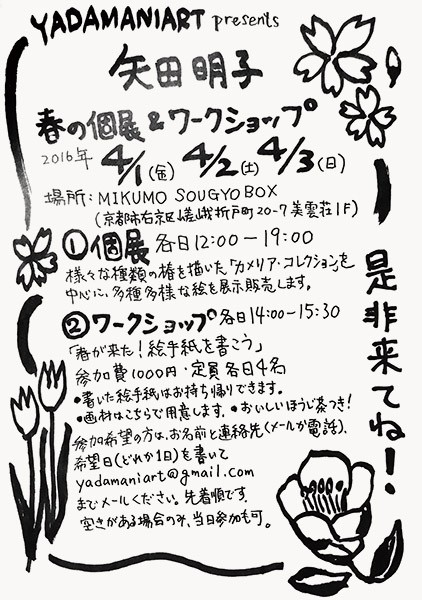 YADAMANIART presents
矢田明子
春の個展&ワークショップ
2016年 4/1(金) 4/2(土) 4/3(日)
場所:MIKUMO SOUGYO BOX
(京都市右京区嵯峨折戸町20-7 美雲荘1F)
①個展 各日12:00-19:00
様々な種類の椿を描いた「カメリア・コレクション」を
中心に、多種多様な絵を展示販売します。
②ワークショップ 各日14:00-15:30
「春が来た!絵手紙を書こう」
参加費1000円・定員各日4名
•書いた絵手紙はお持ち帰りできます。
•画材はこちらで用意します。•おいしいほうじ茶つき!
参加希望の方は、お名前と連絡先(メールか電話)、
希望日(どれか1日)を書いて
yadamaniart@gmail.com
までメールください。先着順です。
空きがある場合のみ、当日参加も可。
是非来てね!